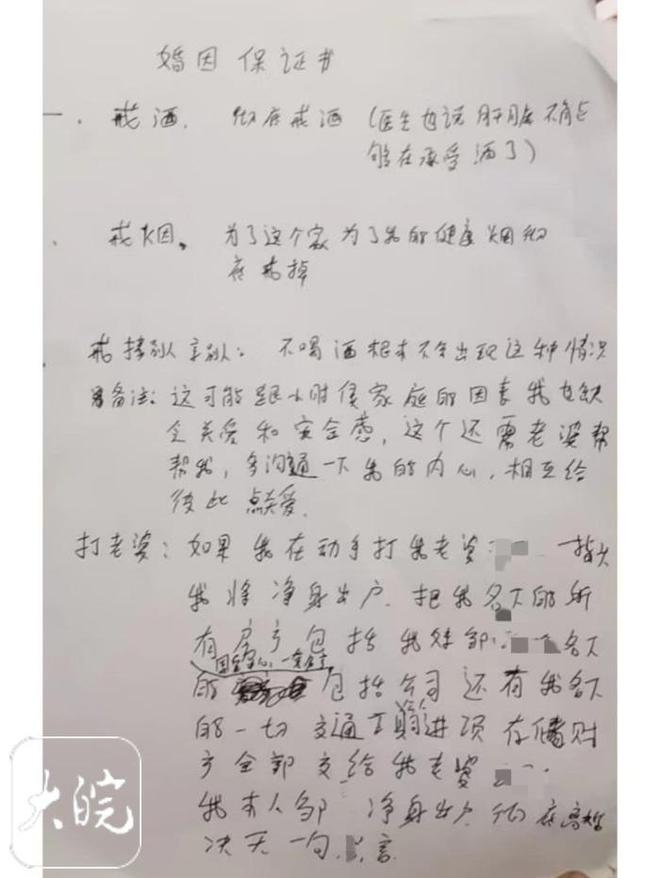 婚因保证书
一、戒酒. 彻底戒酒（医生也说肝脏不能
够在承受酒了）
、戒烟。为了这个家为了我的健康烟彻
底戒掉
戒 : 不喝酒根本不会出现这种情况
备注: 这可能跟小时侯家庭的因素我也缺
乏关爱和安全感，这个还需老婆帮
帮我，多沟通一下我的内心，相互给
彼此点关爱.
打老婆: 如果我在动手打我老婆 一指头
我将净身出户. 把我名下的所
有房产包括我 名下
的 包括公司还有我名下
的一切交通工具 存储财
产全部交给我老婆
我本人 净身出户彻底离婚
决无一句 言.
大皖